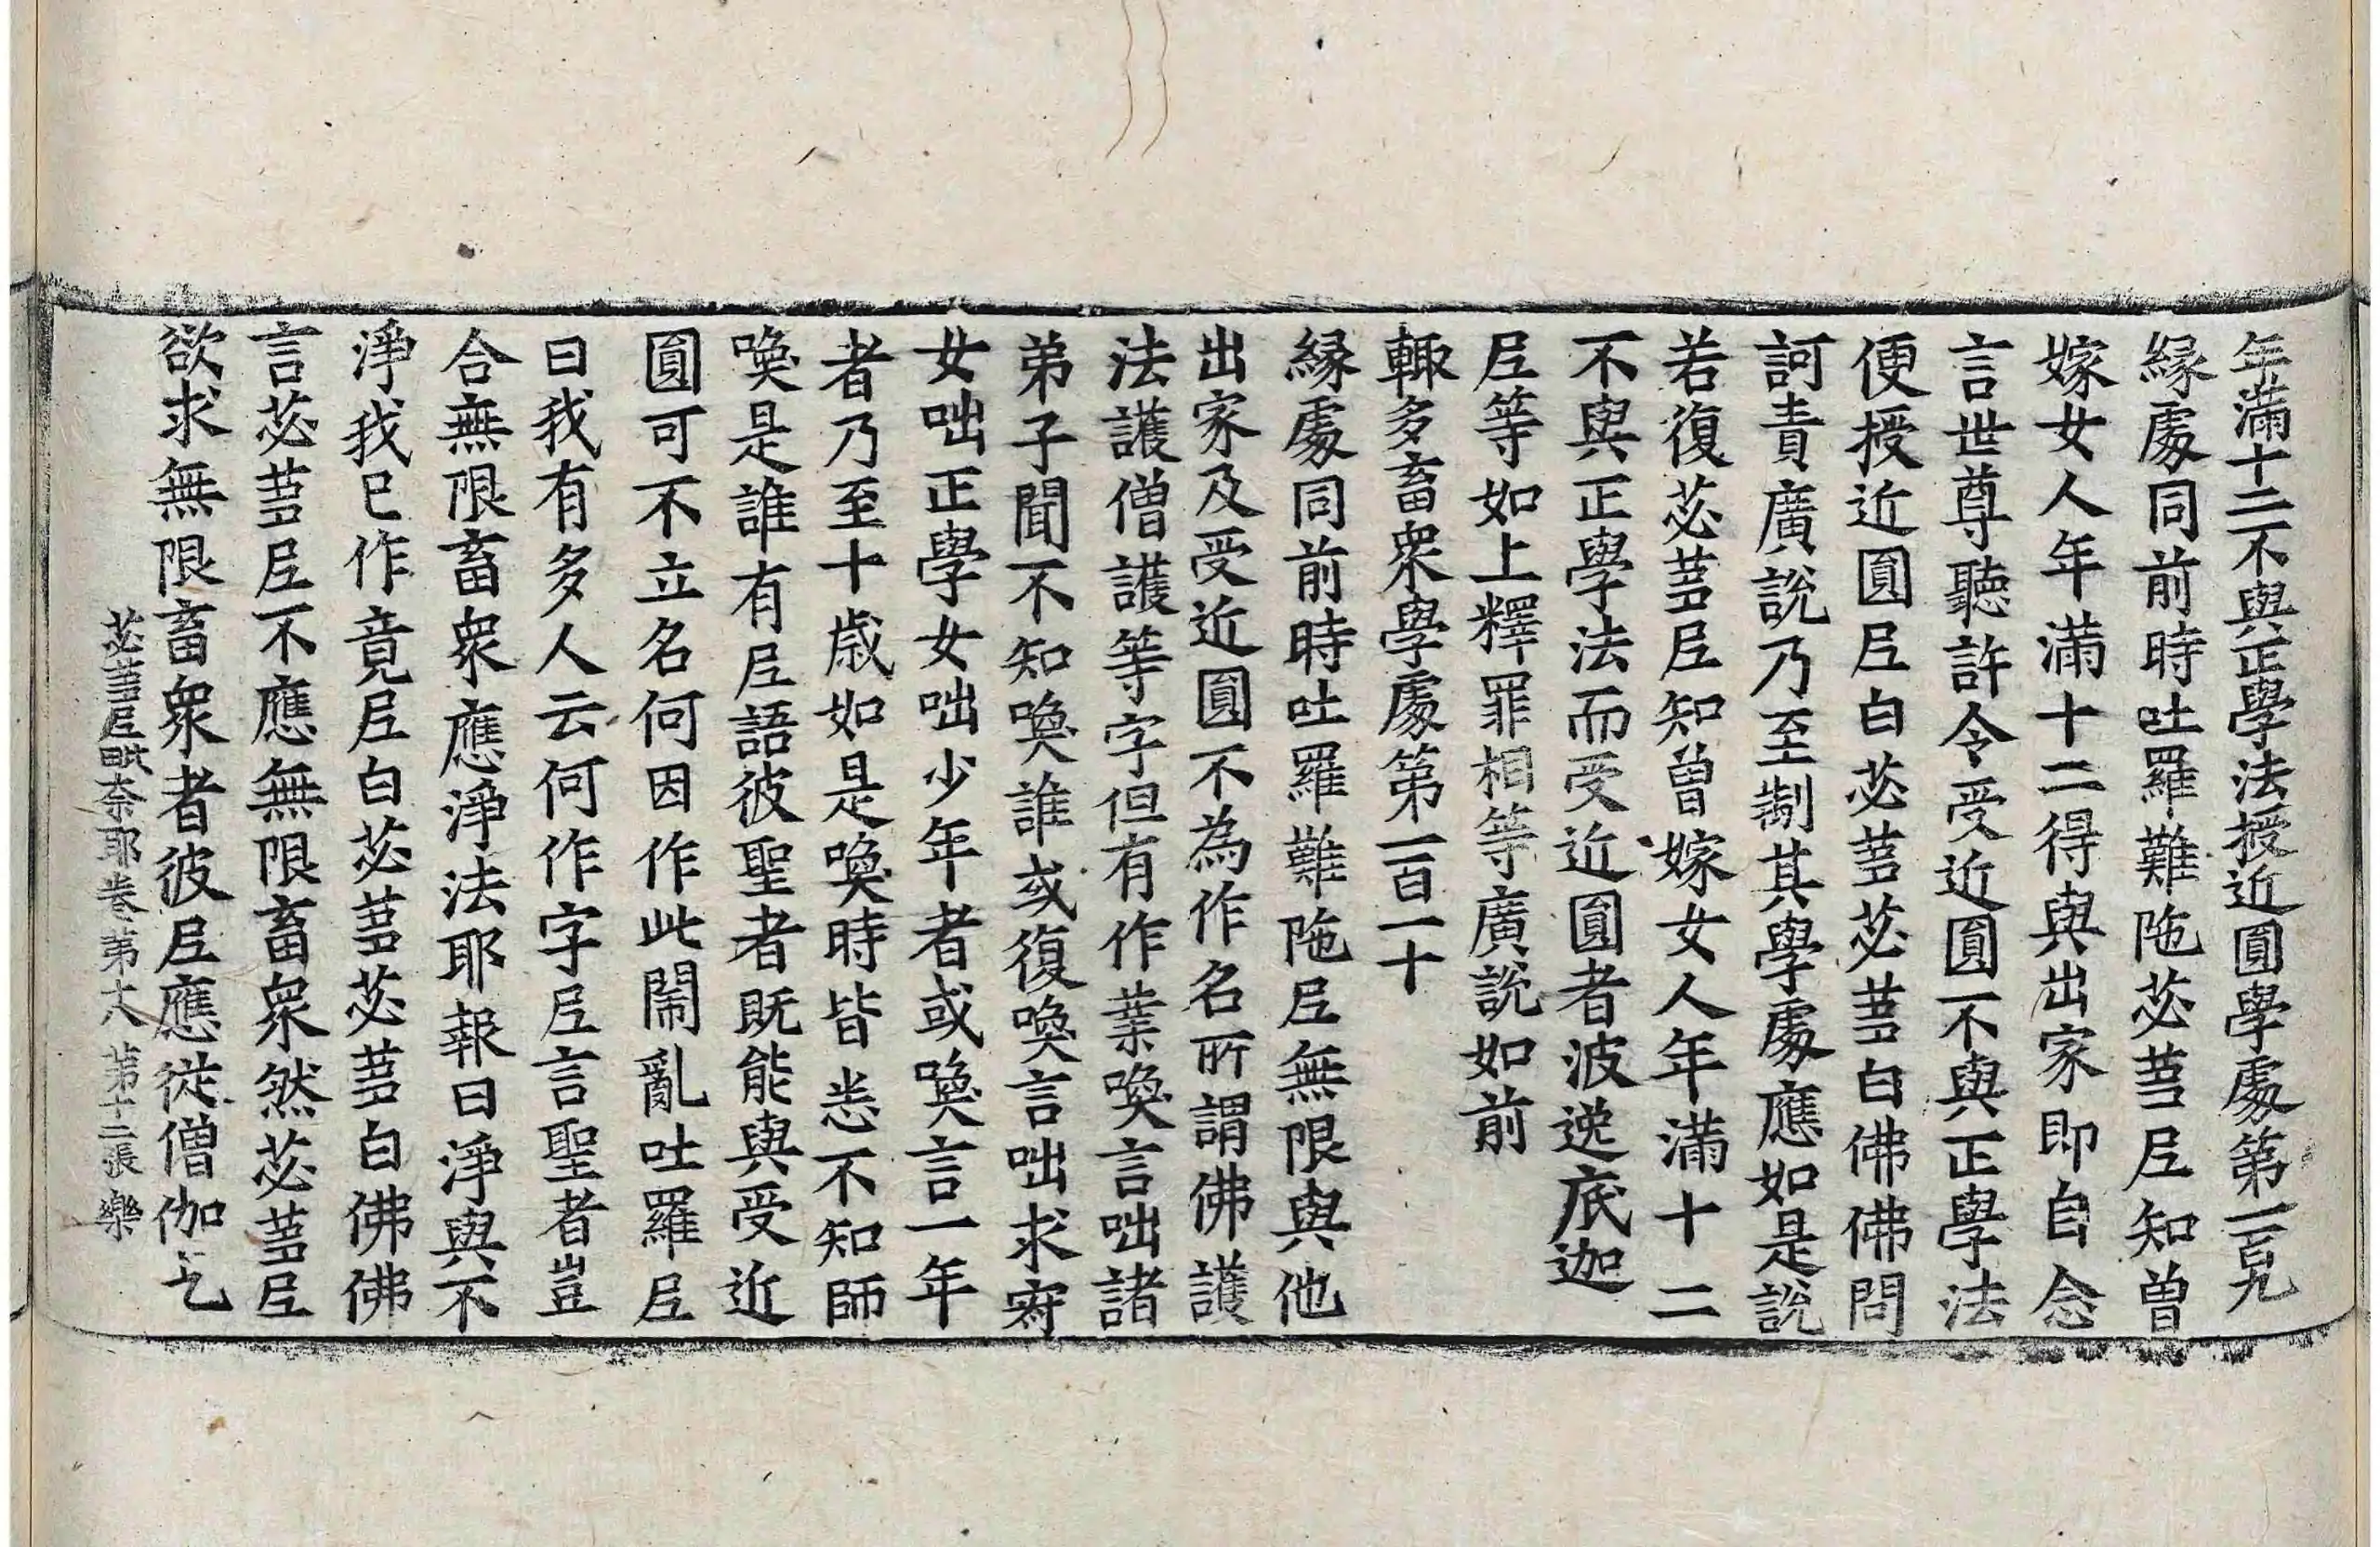 年滿十二不與正學法授近圓學處第一百九
緣處同前時吐羅難陁苾蒭尼知曾
嫁女人年滿十二得與出家即自念
言世尊聽許令受近圓不與正學法
便授近圓尼白苾蒭苾蒭白佛佛問
訶責廣說乃至制其學處應如是說
若復苾蒭尼知曾嫁女人年滿十二
不與正學法而受近圓者波逸底迦
尼等如上釋罪相等廣說如前
輙多畜衆學處第一百一十
緣處同前時吐羅難陁尼無限與他
出家及受近圓不為作名所謂佛護
法護僧護等字但有作業喚言咄諸
弟子聞不知喚誰或復喚言咄求寂
女咄正學女咄少年者或喚言一年
者乃至十歲如是喚時皆悉不知師
喚是誰有尼語彼聖者既能與受近
圓可不立名何因作此閙亂吐羅尼
曰我有多人云何作字尼言聖者豈
合無限畜衆應淨法耶報曰淨與不
淨我已作竟尼白苾蒭苾蒭白佛佛
言苾蒭尼不應無限畜衆然苾蒭尼
欲求無限畜衆者彼尼應從僧伽乞
苾蒭尼毗奈耶卷第六 第十二張 樂